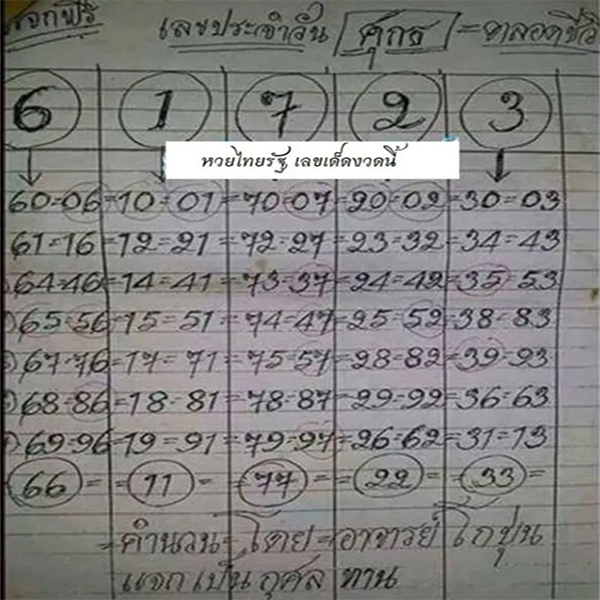 แจกฟรี เลขประจำวัน ศุกร = ตลอดชีวิ
6 1 7 2 3
หวยไทยรัฐ เลขเด็ดงวดนี้
60=06=10=01=70=07=20=02=30=03
61=16=12=21=72=27=23=32=34=43
64=46=14=41=73=37=24=42=35=53
65=56=15=51=74=47=25=52=38=83
67=76=17=71=75=57=28=82=39=93
68=86=18=81=78=87=29=92=36=63
69=96=19=91=79=97=26=62=31=13
66= =11= =77= =22= =33=
=คำนวน=โดย=อาจารย์ โกปุ่น
แจกเป็นกุศลทาน